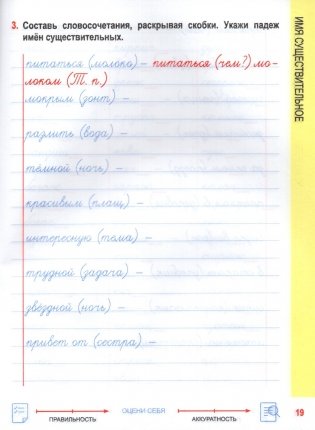 3. Составь словосочетания, раскрывая скобки. Укажи падеж
имён существительных.
питаться (молоко) – питаться (чем?) мо-
локом (Т. п.)
мокрым (зонт) –
разлить (вода) –
тёмной (ночь) –
красивым (плащ) –
интересную (тема) –
трудной (задача) –
звёздной (ночь) –
привет от (сестра) –
ИМЯ СУЩЕСТВИТЕЛЬНОЕ
ПРАВИЛЬНОСТЬ
ОЦЕНИ СЕБЯ
АККУРАТНОСТЬ
19